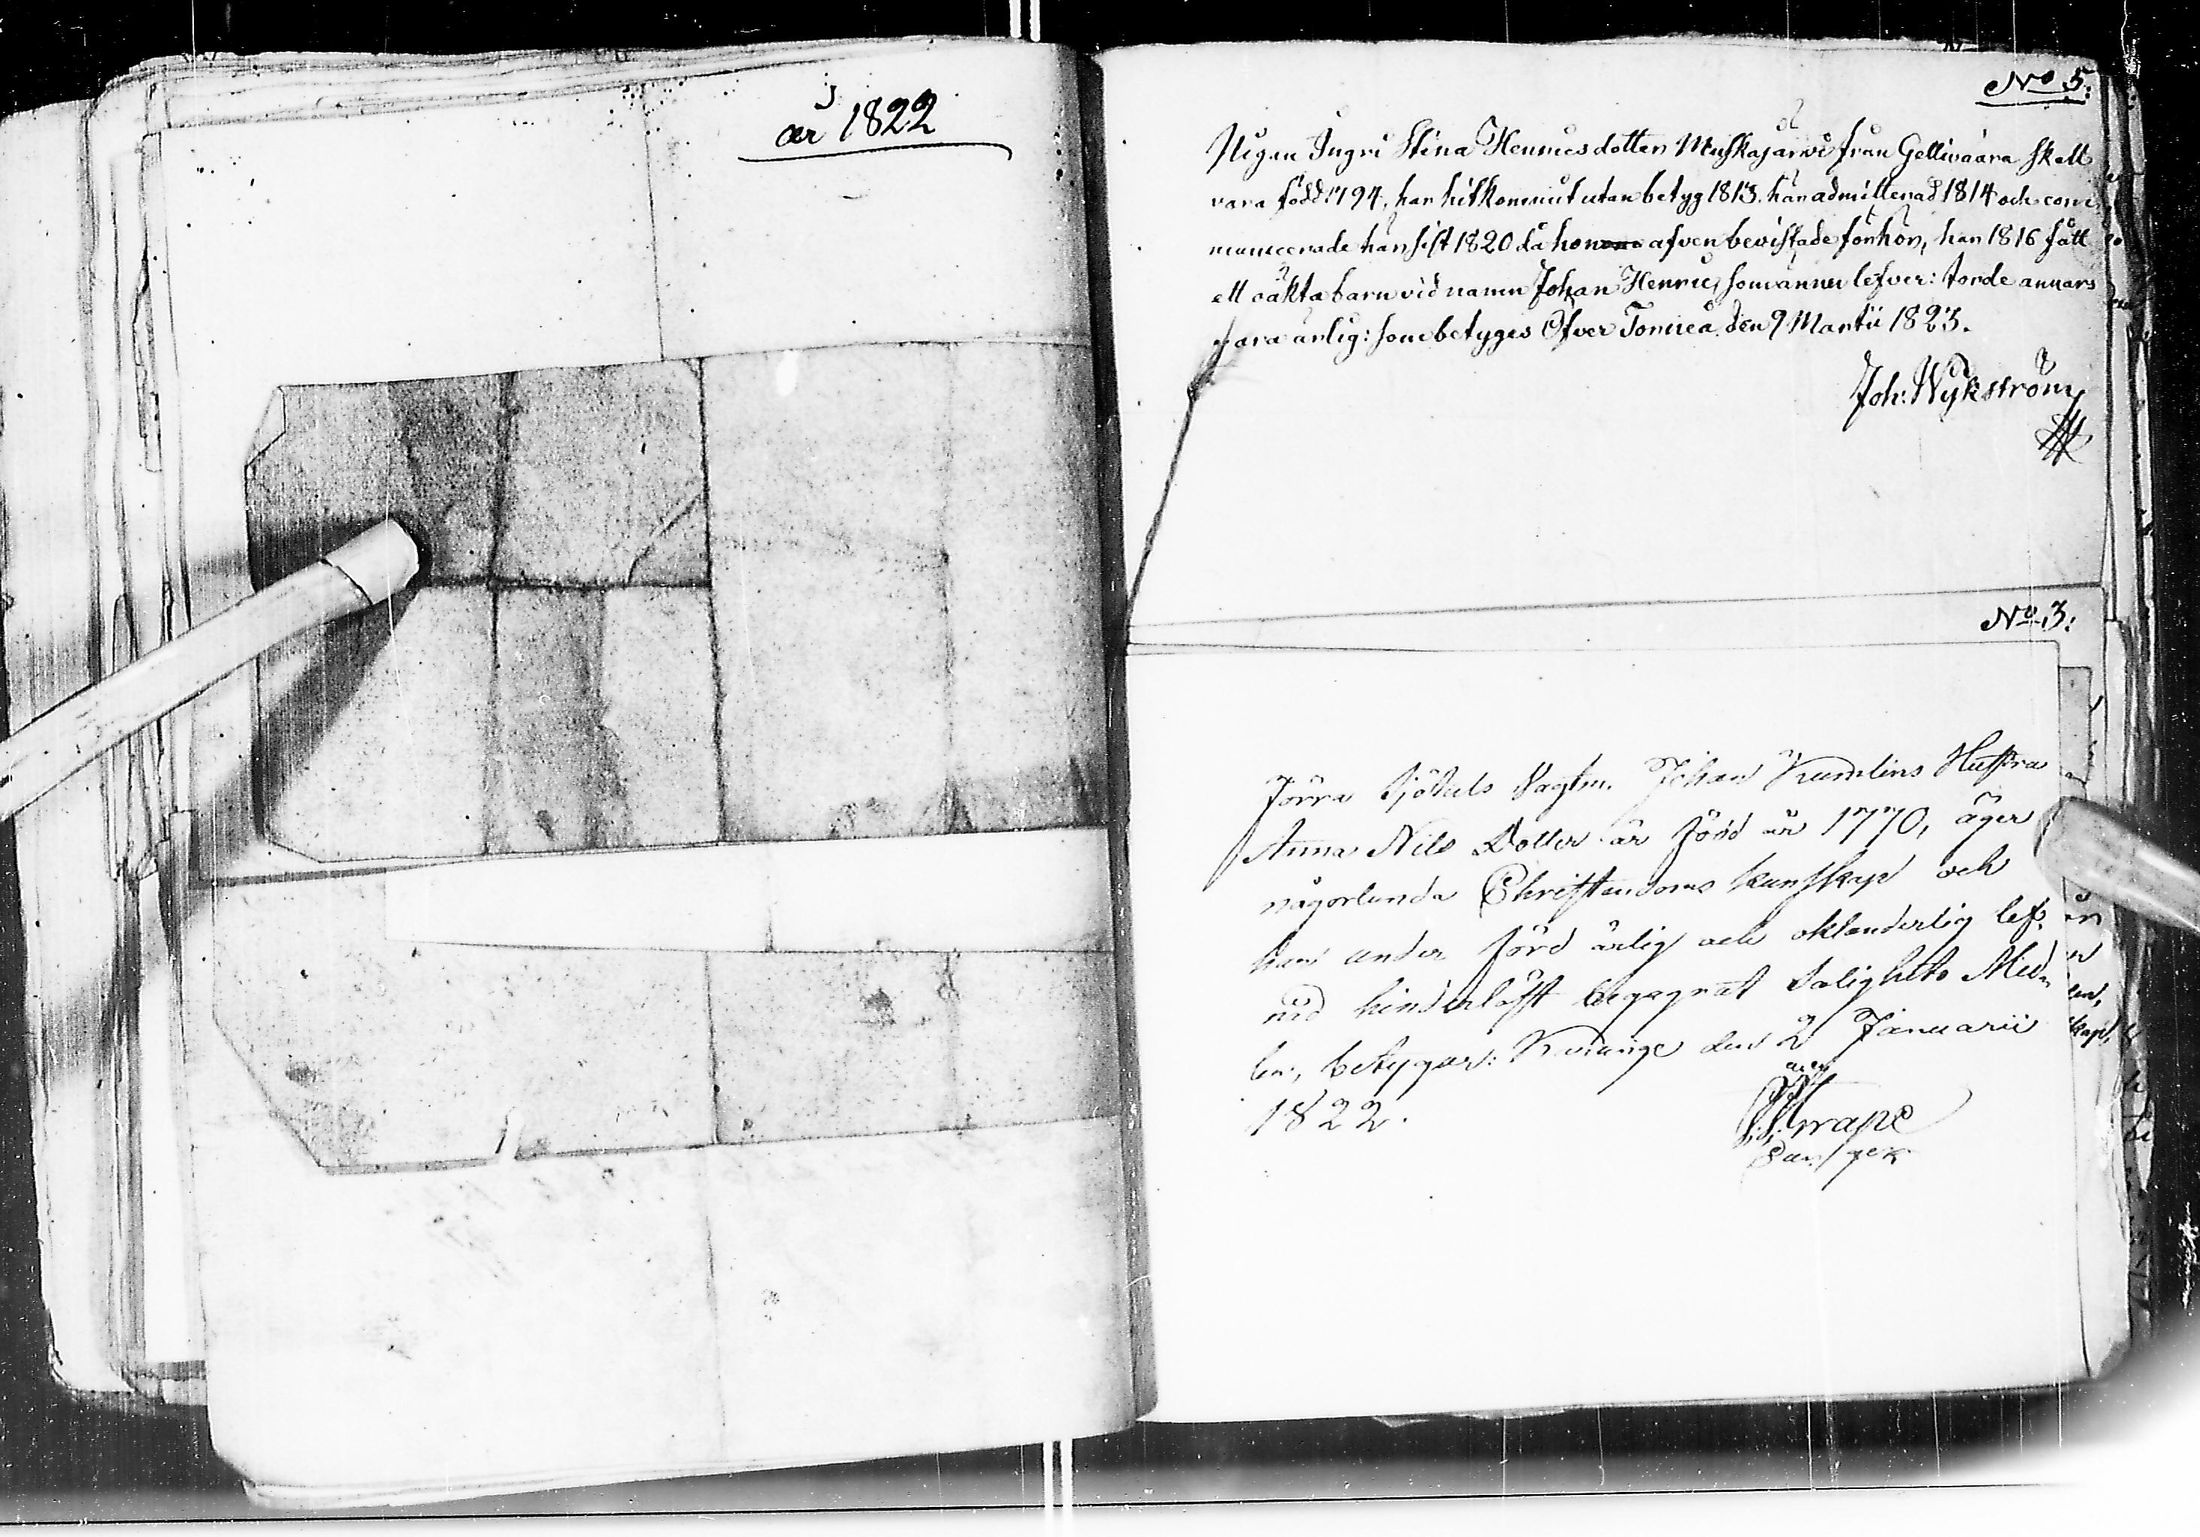 år 1822
No 5:
Pigan Ingri Stina Henricsdotter Muskajärvi från Gellivaara skall
vara född 1794, har hitkommit utan betyg 1813. här admitterad 1814 och com-
municerade här sist 1820 då hon äfven bevistade förhör, har 1816 fått
ett oäkta barn vid namn Johan Henric, som ännu lefver: torde annars
vara ärlig: som betyges Öfver Torneå den 9 Martii 1823.
Joh: Wykström
No 3:
Förra Johan Kumlins Hustru
Anna Nils Dotter är född år 1770, äger
någorlunda Christendoms kunskap och
har under förd ärlig och oklanderlig lef-
nad hinderlöst begagnat Salighets Med-
len, betygar: den 2 Januarii
1822.
Grape